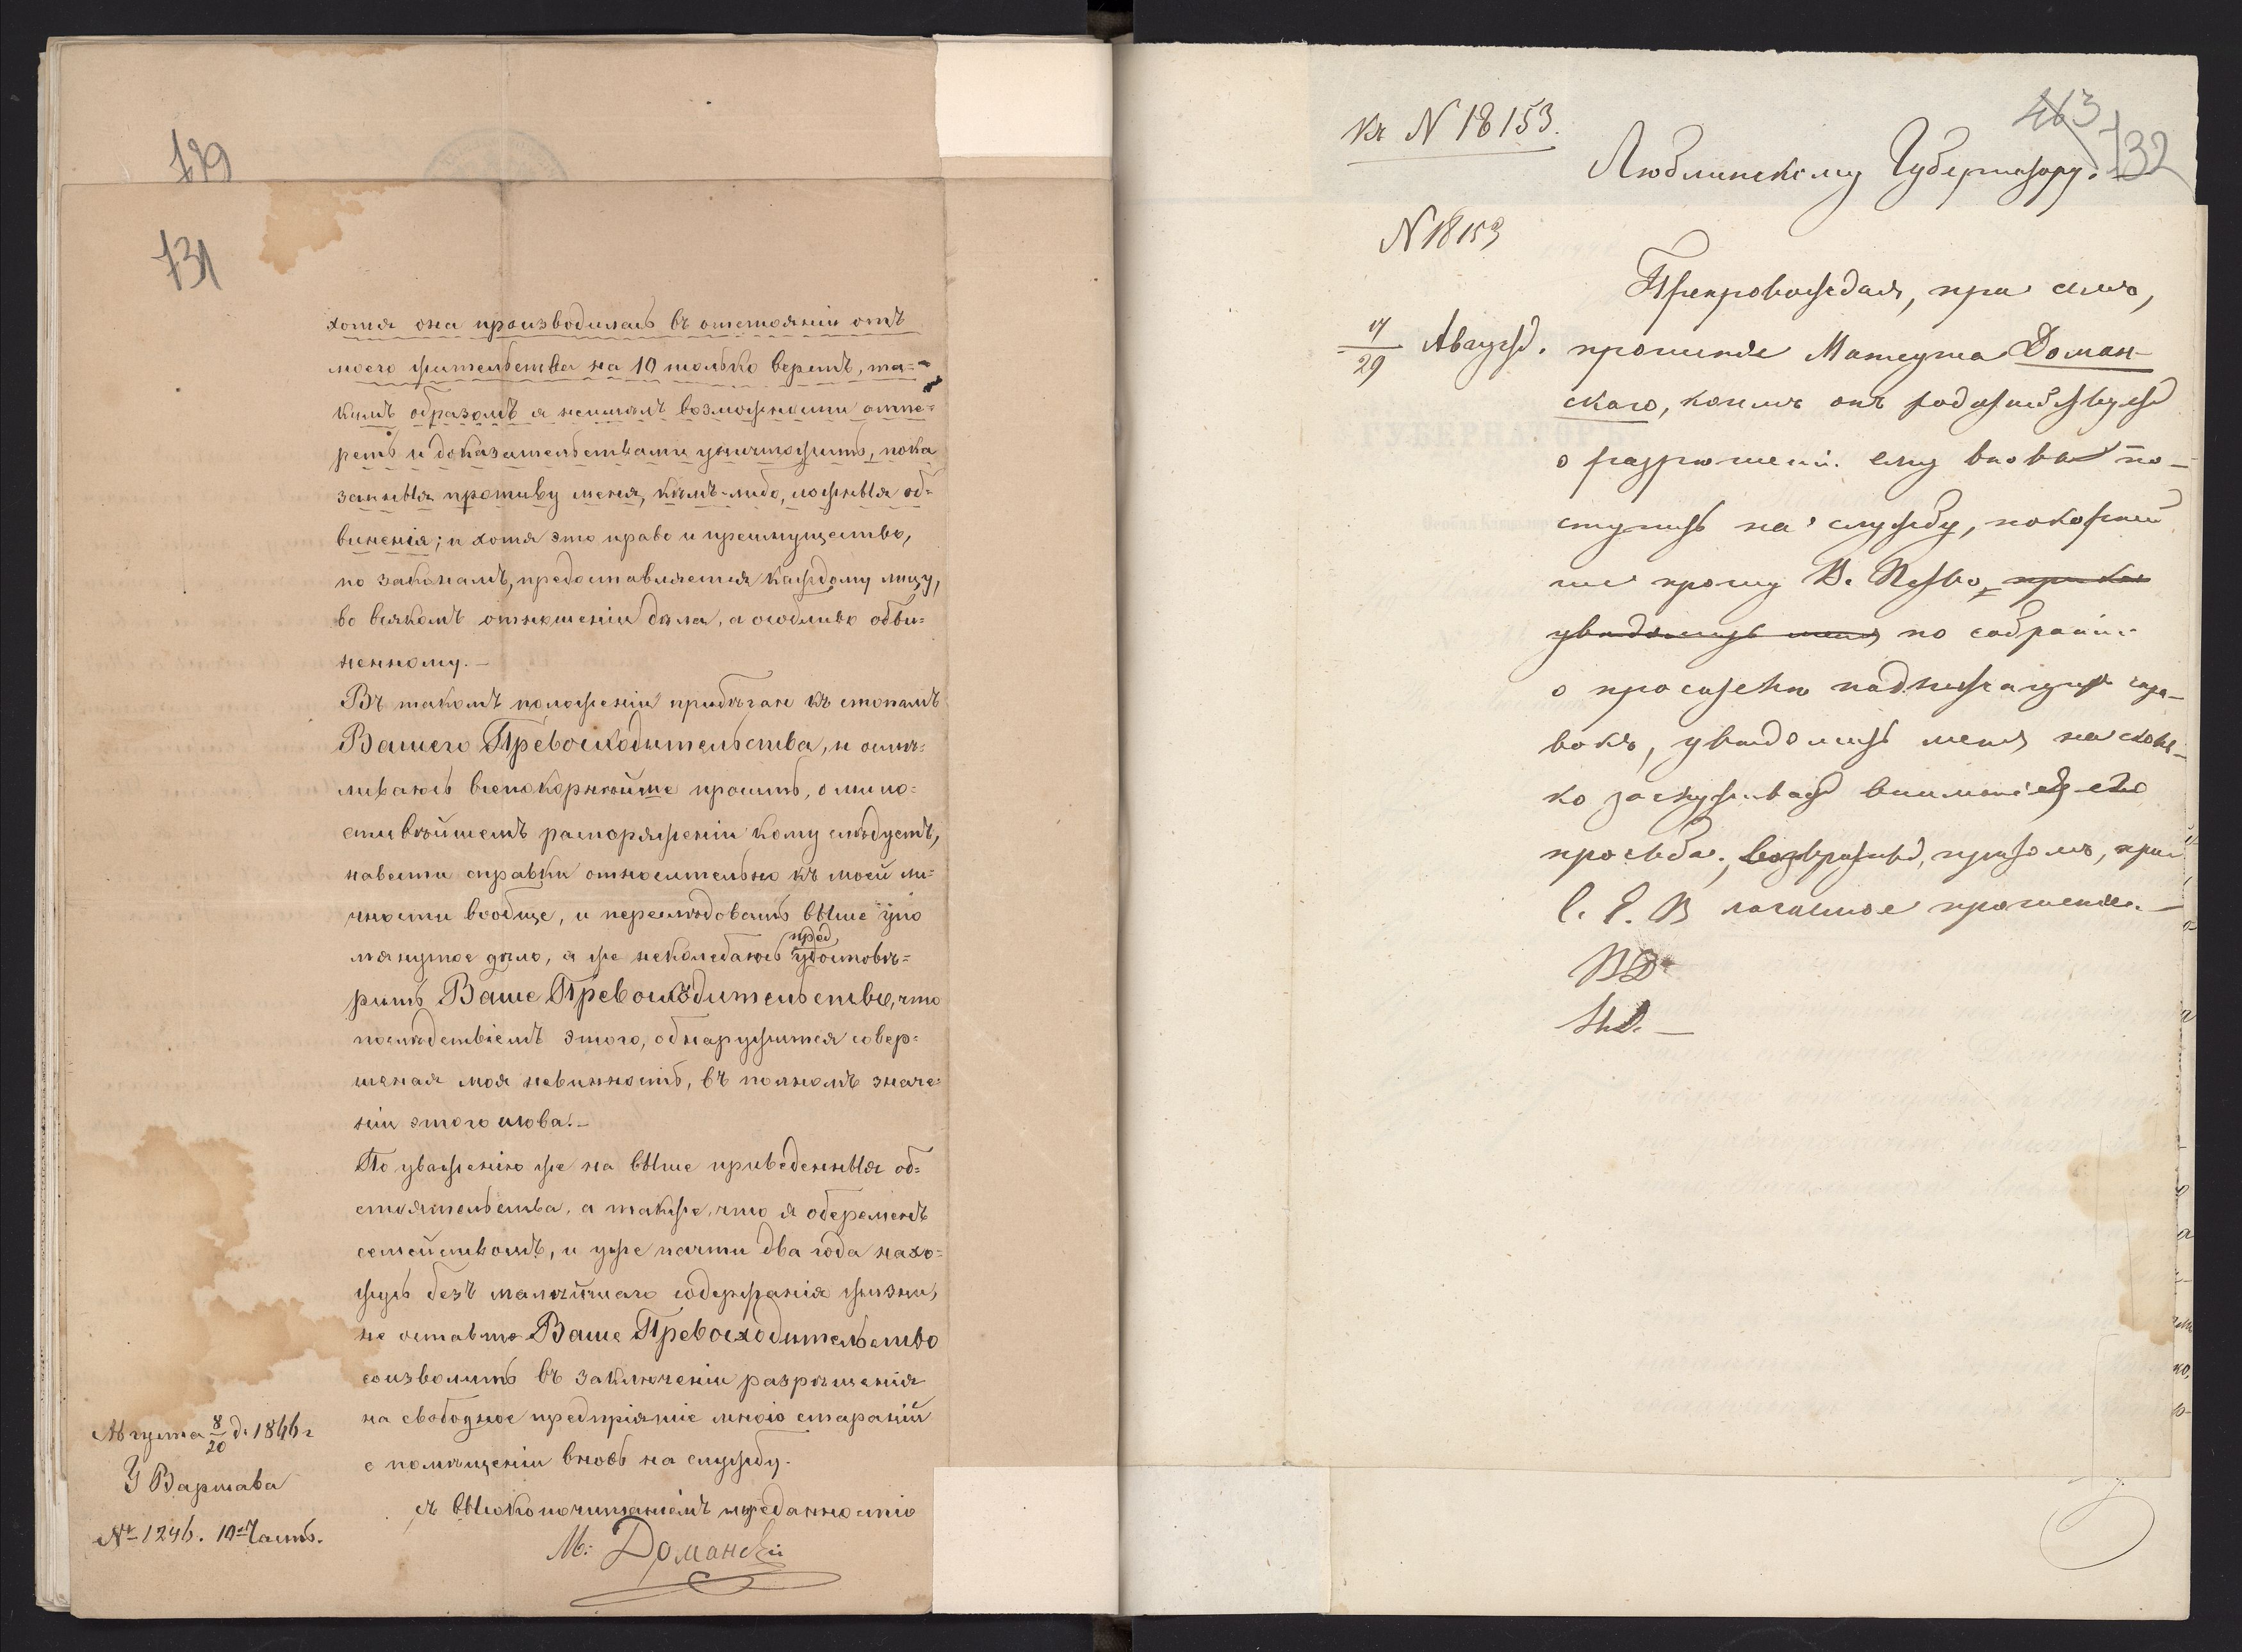 129
131
хотя она производилась въ отстояніи отъ
моего жительства на 10 только верстъ, та=
кимъ образомъ я неимѣлъ возможности отпе=
реть и доказательствами уничтожить, пока
занныя противу меня, кѣмъ-либо, ложныя об=
виненія; и хотя это право и преимущество,
по законамъ, предоставляется каждому лицу,
во всякомъ отношеніи дѣла, а особливо обви=
ненному. —
Въ такомъ положеніи прибѣгаю къ стопамъ
Вашего Превосходительства, и осмѣ=
ливаюсь всепокорнѣйше просить, о мило=
стивѣйшемъ распоряженіи кому слѣдуетъ,
навести справки относительно къ моей ли=
чности вообще, и переслѣдовать выше упо
мянутое дѣло, а же неколеблюсь
пред
удостовѣ=
рить Ваше Превосходительство, что
послѣдствіемъ этого, обнаружится совер=
шеная моя невинность, въ полномъ значе=
ніи этого слова! —
По уваженію же на выше приведенныя об=
стоятельства, а также, что я обремененъ
семействомъ, и уже почти два года нахо=
жусь безъ малѣйшаго содержанія жизни,
не оставте Ваше Превосходительство
соизволить въ заключеніи разрѣшенія
на свободное предпріятіе мною стараній
о помѣщеніи вновь на службу.
съ высокопочитаніемъ и преданностію
М: Доманскій
Августа 8/20 д. 1866 г
У Варшава
№ 1246. 10я Часть.
463
132
Къ N 18153.
Люблинскому Губернатору.
N 18153
17/29 Август.
Препровождая, при семъ,
прошеніе Матеуша Доман-
скаго, коимъ онъ ходатайствуетъ
о разрѣшеніи ему вновь по-
ступить на службу, покорнѣй
ше прошу В. Пр-во,
увѣдомить меня по собраніи
о просителѣ надлежащихъ спра-
вокъ, увѣдомить меня на сколь-
ко заслуживаетъ вниманія его
просьба, возвративъ, притомъ, при
С. Е. В прошеніе. —
ГУБЕРНАТОР